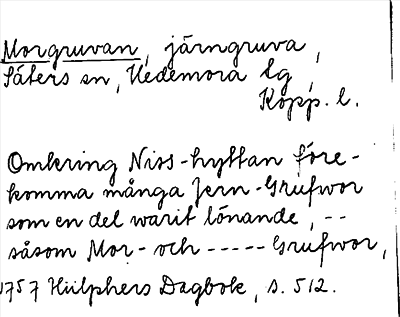 Morgruvan, järngruva,
Säters sn, Hedemora lg,
Kopp. l.
Omkring Niss-hyttan före-
komma många Jern-Grufwor
som en del warit lönande, --
såsom Mor- och ----- Grufwor,
1757 Hülphers Dagbok, s. 512.